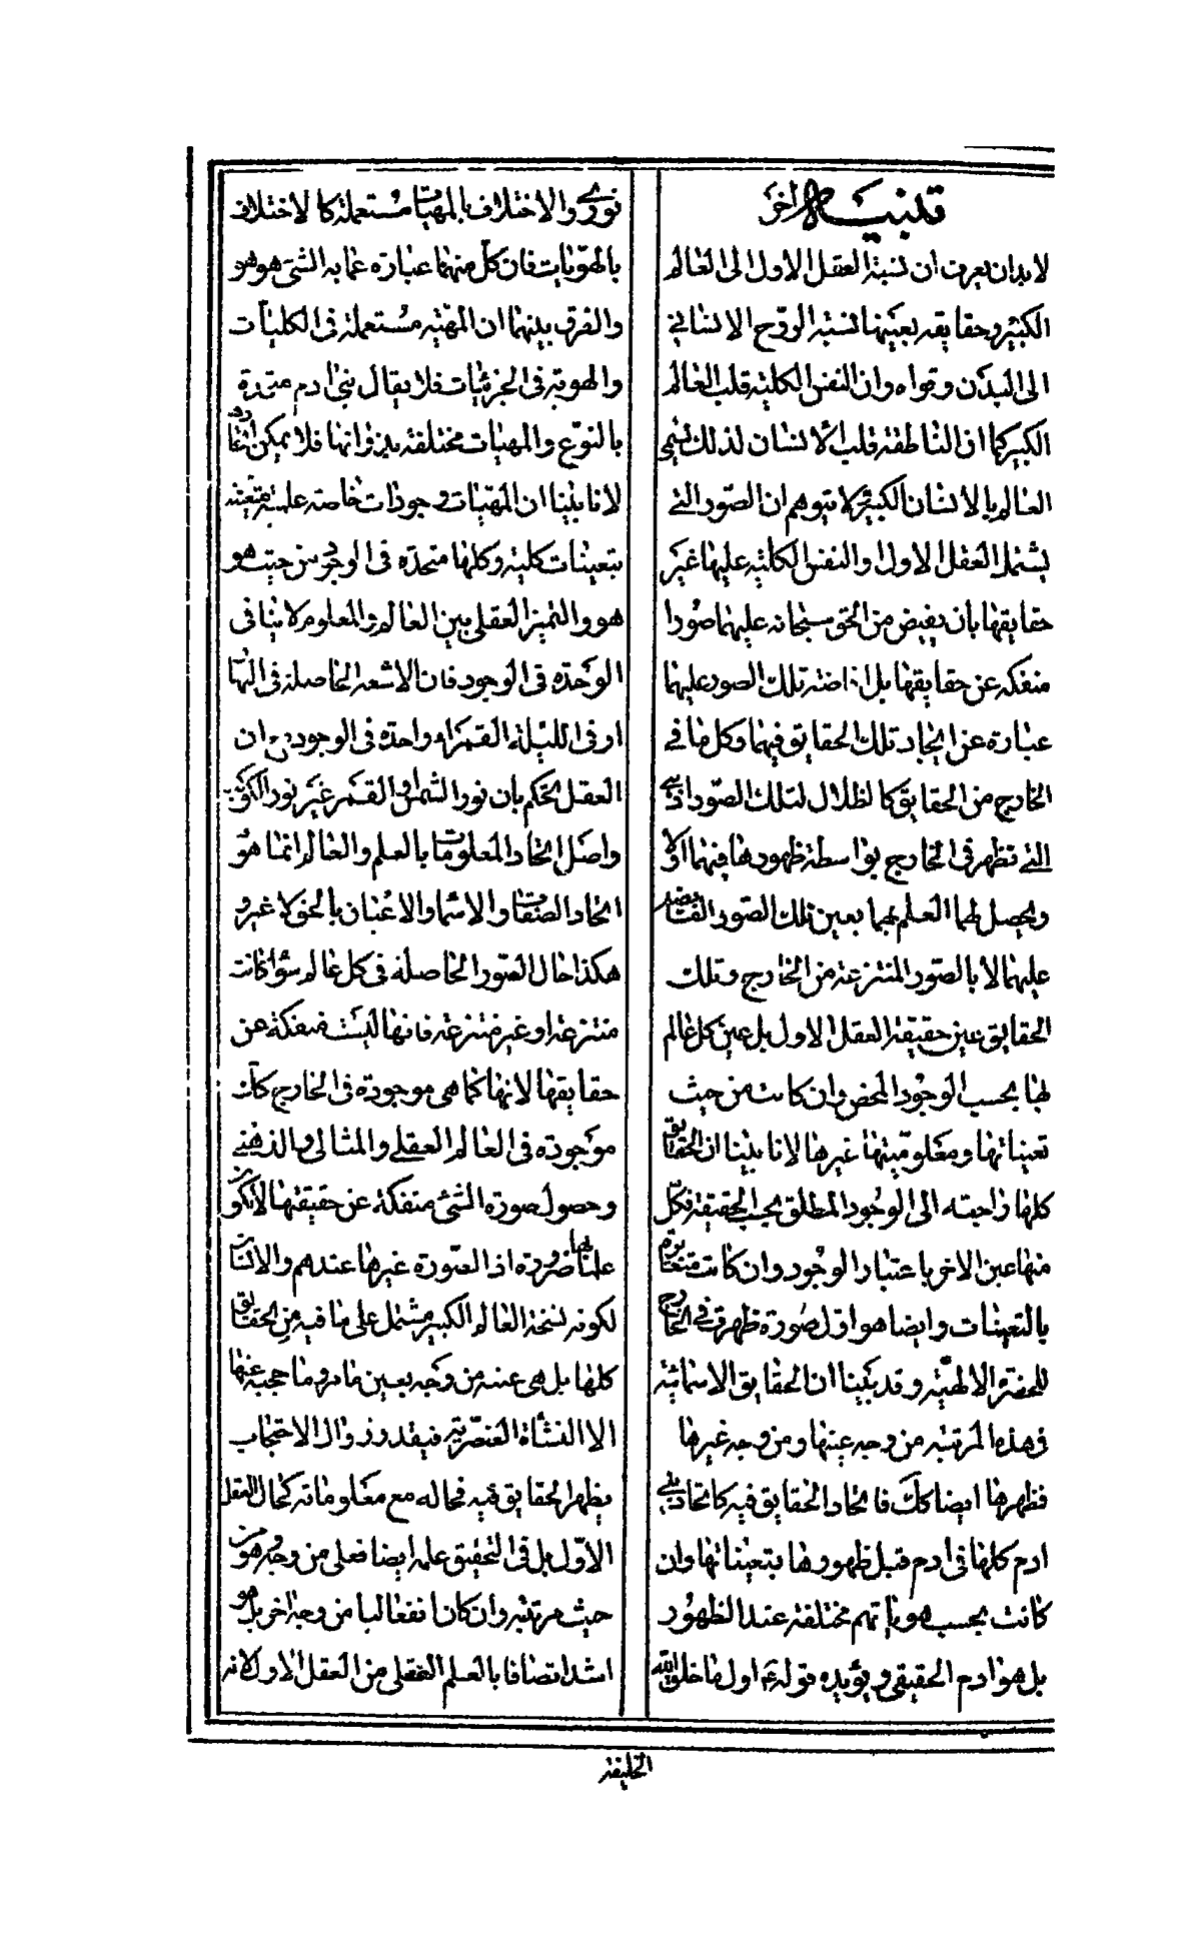 تنبيه اخر
لا بد ان يعرف ان نسبة العقل الاول الى العالم
الكبير وحقايقه بعينها نسبة الروح الانسانى
الى البدن وقواه وان النفس الكلية قلب العالم
الكبير كما ان الناطقة قلب الانسان لذلك يسمى
العالم بالانسان الكبير لا يتوهم ان الصور التى
يشتمل العقل الاول والنفس الكلية عليها غير
حقايقها بان يفيض من الحق سبحانه عليهما صورا
منفكه عن حقايقها بل افاضة تلك الصور عليهما
عبارة عن ايجاد تلك الحقايق فيهما وكل ما فى
الخارج من الحقايق كالظلال لتلك الصور اذ هى
التى تظهر فى الخارج بواسطة ظهورها فيهما اولا
ويحصل لهما العلم بهما بعين تلك الصور الفائضه
عليهما لا بالصور المنتزعة من الخارج وتلك
الحقايق عين حقيقة العقل الاول بل عين كل عالم
لها بحسب الوجود المحض وان كانت من حيث
تعيناتها ومعلوميتها غيرها لانا بينا ان الحقايق
كلها راجعة الى الوجود المطلق بحسب الحقيقة فكل
منها عين الاخر باعتبار الوجود وان كانت متغايرة
بالتعينات وايضا هو اول صورة ظهرت فى الخارج
للحضرة الالهية وقد بينا ان الحقايق الاسمائية
فى هذه المرتبه من وجه عينها ومن وجه غيرها
فظهرها ايضا كك فاتحاد الحقايق فيه كاتحاد بنى
ادم كلها فى ادم قبل ظهورها بتعيناتها وان
كانت بحسب هوياتهم مختلفة عند الظهور
بل هو ادم الحقيقى ويؤيده قوله ع اول ما خلق الله
نورى والاختلاف بالمهيات مستعملة كالاختلاف
بالهويات فان كل منهما عبارة عما به الشئ هو هو
والفرق بينهما ان المهية مستعملة فى الكليات
والهوية فى الجزئيات فلا يقال بنى ادم متحدة
بالنوع والمهيات مختلفة بذواتها فلا يمكن اتحادها
لانا بينا ان المهيات وجودات خاصة علمية متعينة
بتعينات كلية وكلها متحدة فى الوجود من حيث هو
هو والتميز العقلى بين العالم والمعلوم لا ينافى
الوحدة فى الوجود فان الاشعة الحاصلة فى النهار
او فى الليلة القمراء واحدة فى الوجود مع ان
العقل يحكم بان نور الشمس والقمر غير نور الكوكب
واصل اتحاد المعلومات بالعلم والعالم انما هو
اتحاد الصفات والاسماء والاعيان بالحق لا غير و
هكذا حال الصور الحاصلة فى كل عالم سواء كانت
منتزعة او غير منتزعة فانها ليست منفكة عن
حقايقها لانها كما هى موجودة فى الخارج كذلك
موجودة فى العالم العقلى والمثالى والذهنى
وحصول صورة الشئ منفكة عن حقيقتها لا يكون
علما بها ضرورة اذ الصورة غيرها عندهم والانسان
لكونه نسخة العالم الكبير مشتمل على ما فيه من الحقايق
كلها بل هى عينه من وجه بعين ما مر وما حجبه عنها
الا النشأة العنصرية فبقدر زوال الاحتجاب
يظهر الحقايق فيه فحاله مع معلوماته كحال العقل
الاول بل فى التحقيق علمه ايضا فعلى من وجه هو من
حيث مرتبته وان كان انفعاليا من وجه اخر بل هو
اشد اتصافا بالعلم الفعلى من العقل الاول لانه
الخليفة